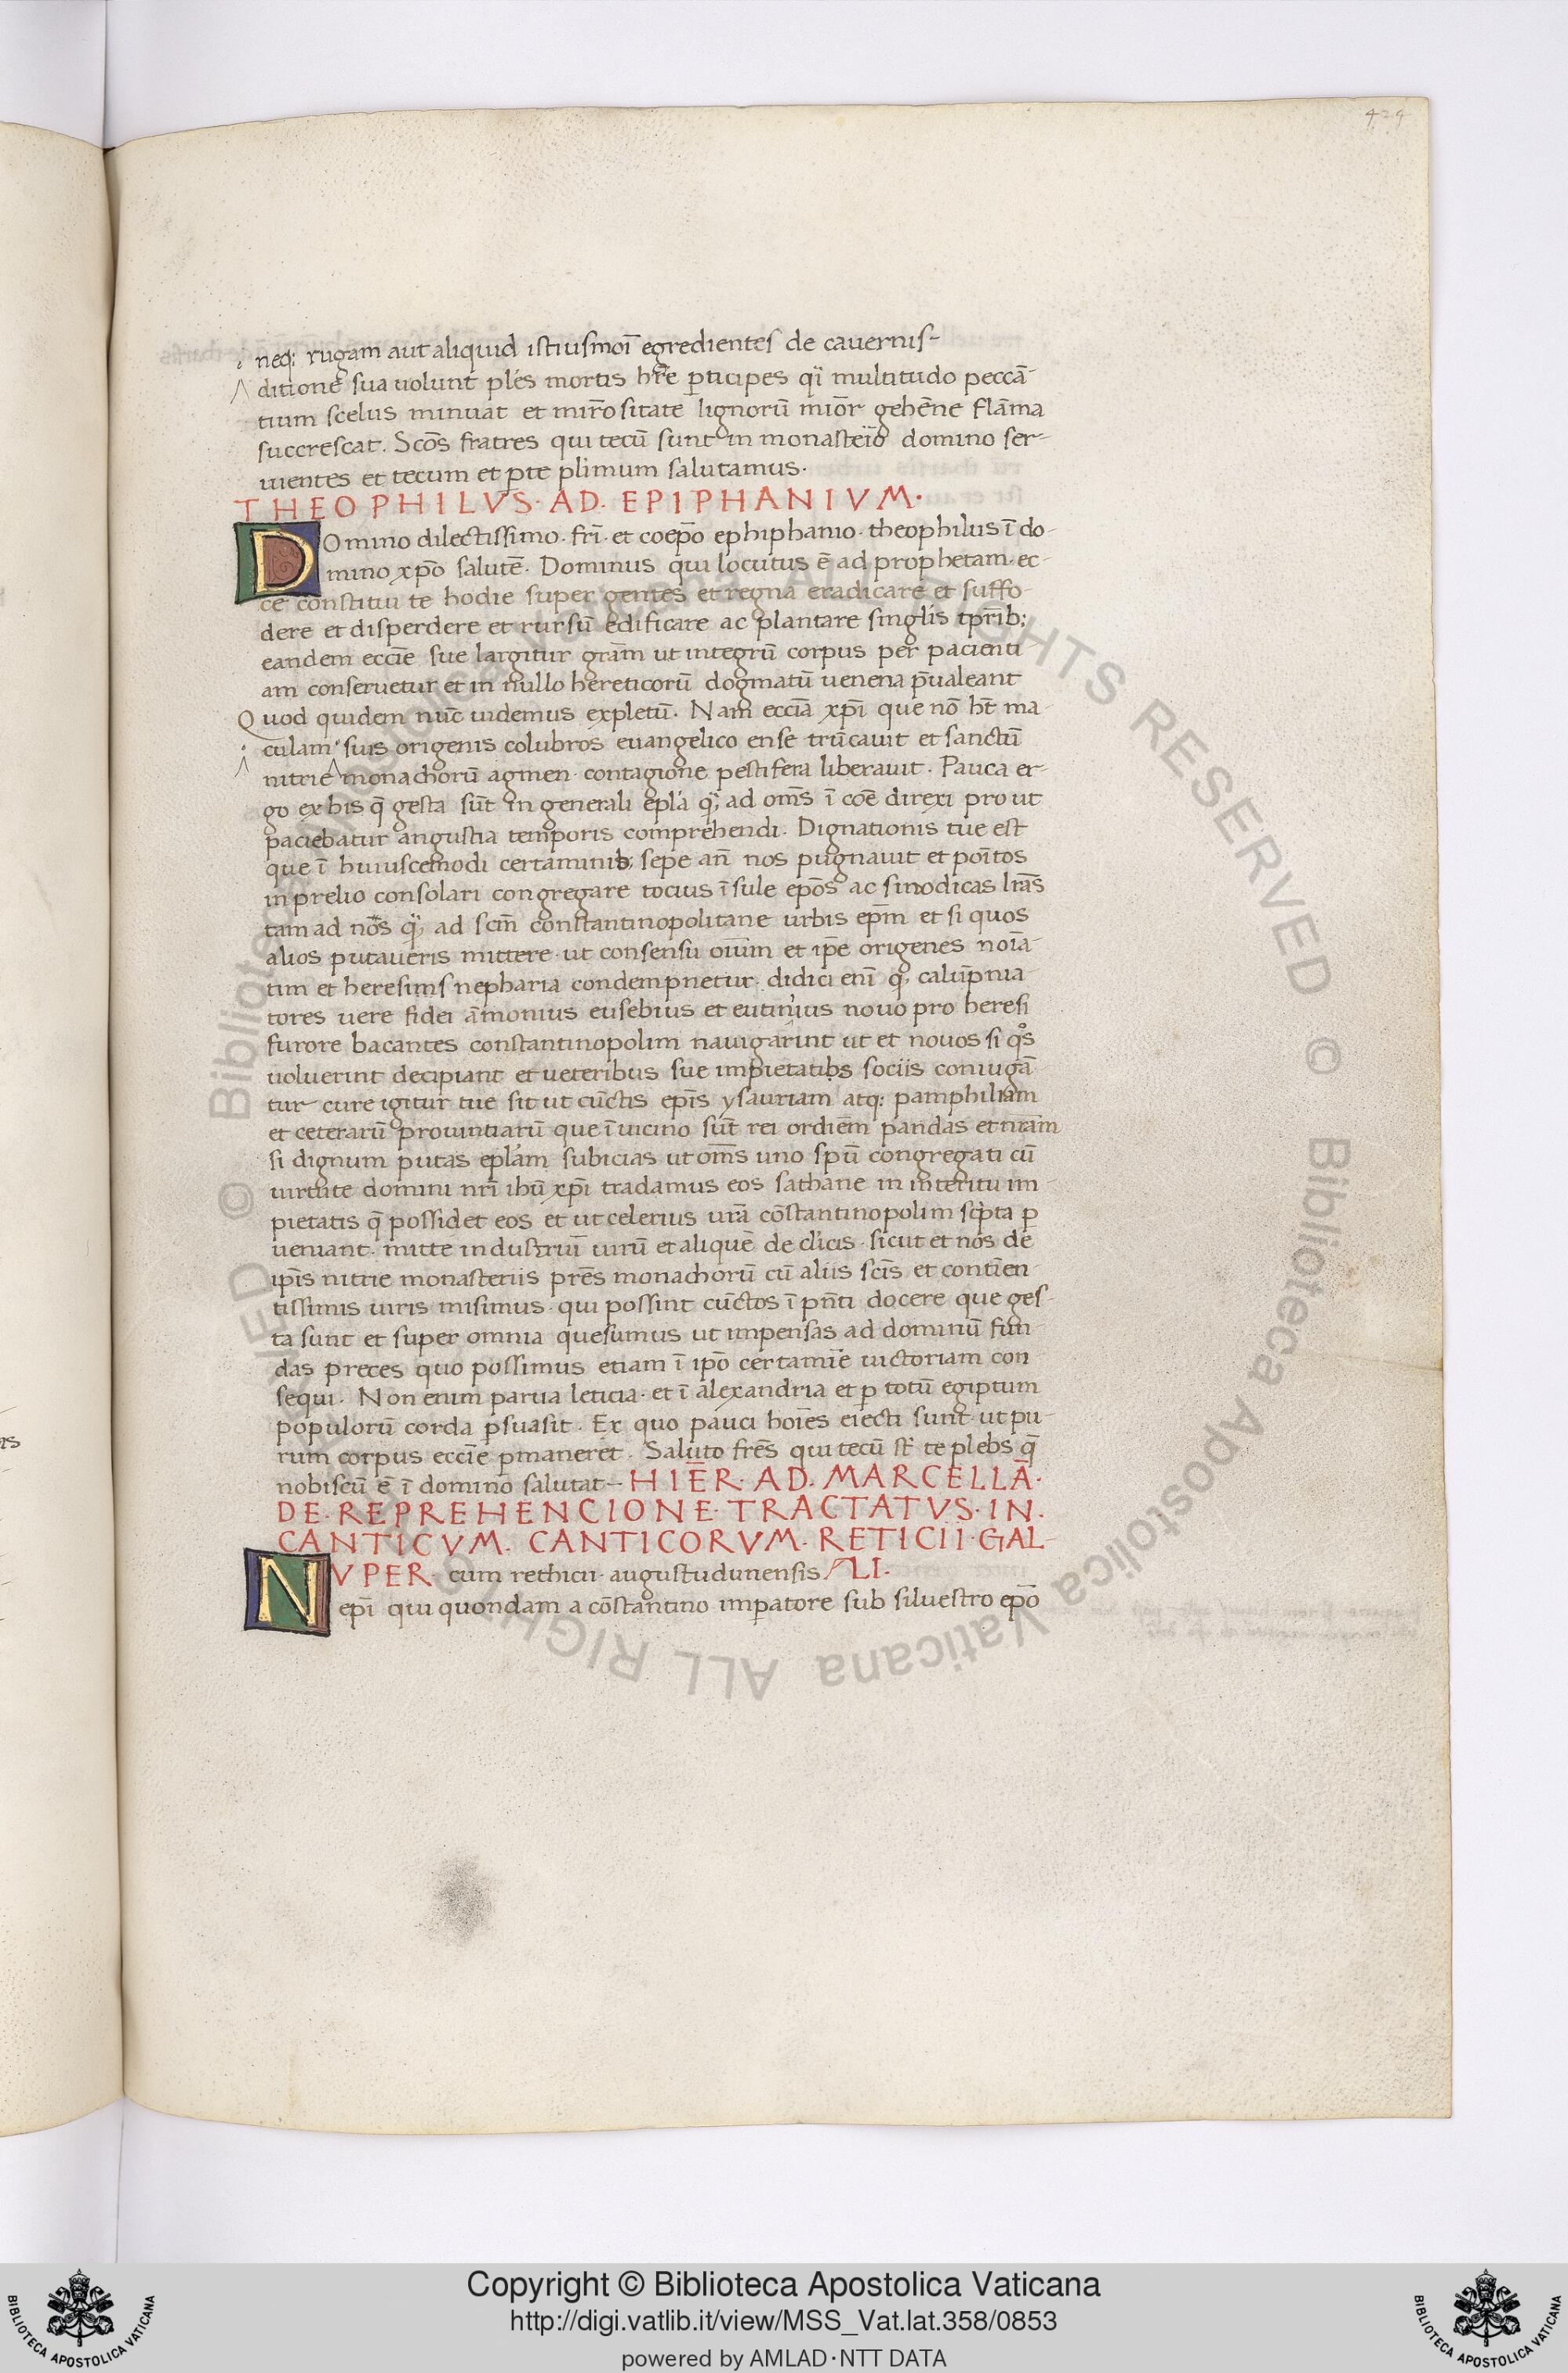 429
neq; rugam aut aliquid istiusmoı̄ egredientes de cauernis-
ditione sua uolunt ples mortis hr̄e p̲ticipes qı̈ multitudo peccā-
tium scelus minuat et mir̄ositate lignorū mior̄ gehēne flāma
succrescat. Scōs fratres qui tecū sunt in monasteı̄o domino ser-
uientes et tecum et p̲te plimum salutamus.
THEOPHILVS·AD·EPIPHANIVM·
DOmino dilectissimo· frı̄· et coep̄o ephiphanio· theophilus ı̄ do-
mino xp̄o salutē· Dominus qui locutus ē ad prophetam· ec-
ce constitui te hodie super gentes et regna eradicare et suffo-
dere et disperdere et rursū edificare ac plantare singlis tpr̄ib;
eandem eccīe sue largitur grām ut integrū corpus per pacienti-
am conseruetur et in nullo hereticorū dogmatū uenena p̄ualeant
Quod quidem nūc uidemus expletū. Nam eccīa xp̄i que nō ht̄ ma-
culam· suis origenis colubros euangelico ense trūcauit et sanctū
nitrie monachorū agmen· contagione pestifera liberauit. Pauca er-
go ex his q̄ gesta sūt in generali epla q; ad om̄s ı̄ cōe direxi pro ut
paciebatur angustia temporis comprehendi. Dignationis tue est
que ı̄ huiuscemodi certaminib; sepe an̄ nos pugnauit et poı̄tos
in prelio consolari congregare tocius ı̄sule epōs ac sinodicas lrās
tam ad nos q; ad scm̄ constantinopolitane urbis ep̄m et si quos
alios putaueris mittere· ut consensu oīum et ip̄e origenes noīa-
tim et heresims nepharia condempnetur· didici enı̄ q; calup̄nia-
tores uere fidei āmonius eusebius et eutimius nouo pro heresi
furore bacantes constantinopolim nauigarint ut et nouos si qos
uoluerint decipiant et ueteribus sue impietatibs sociis coniugā-
tur cure igitur tue sit ut cūctis ep̄is ysauriam atq: pamphiliam
et ceterarū prouintiarū que ı̄ uicino sūt rei ordiēm pandas et nr̄am
si dignum putas eplam subicias ut om̄s uno spū congregati cū
uirtute domini nrı̄ ihū xp̄i tradamus eos sathane in interitu im-
pietatis q̄ possidet eos et ut celerius ur̄a cōstantinopolim scp̄ta p̲
ueniant· mitte industriū uirū et aliquē de cl'icis· sicut et nos de
ip̄is nitrie monasteriis prēs monachorū cū aliis scı̄s et contīen-
tissimis uiris misimus· qui possint cūctos ı̄ pn̄ti docere que ges-
ta sunt et super omnia quesumus ut impensas ad dominū fun-
das preces quo possimus etiam ı̄ ip̄o certamīe uictoriam con-
sequi· Non enim parua leticia· et ı̄ alexandria et p̲ totū egiptum
populorū corda p̲suasit. Ex quo pauci hoīes eiecti sunt· ut pu-
rum corpus eccīe p̲maneret. Saluto frēs qui tecū st̄ te plebs q̄
nobiscū ē ı̄ domino salutat- HIĒR·AD·MARCELLĀ·
DE·REPREHENCIONE·TRACTATVS·IN·
CANTICVM·CANTICORVM·RETICII·GAL-
NVPER· cum rethicii· augustudunensis LI·
ep̄i qui quondam a cōstantino imp̲atore sub siluestro ep̄o
Copyright © Biblioteca Apostolica Vaticana
http://digi.vatlib.it/view/MSS_Vat.lat.358/0853
powered by AMLAD·NTT DATA
© Biblioteca Apostolica Vaticana ALL RIGHTS RESERVED
BIBLIOTECA APOSTOLICA VATICANA
BIBLIOTECA APOSTOLICA VATICANA